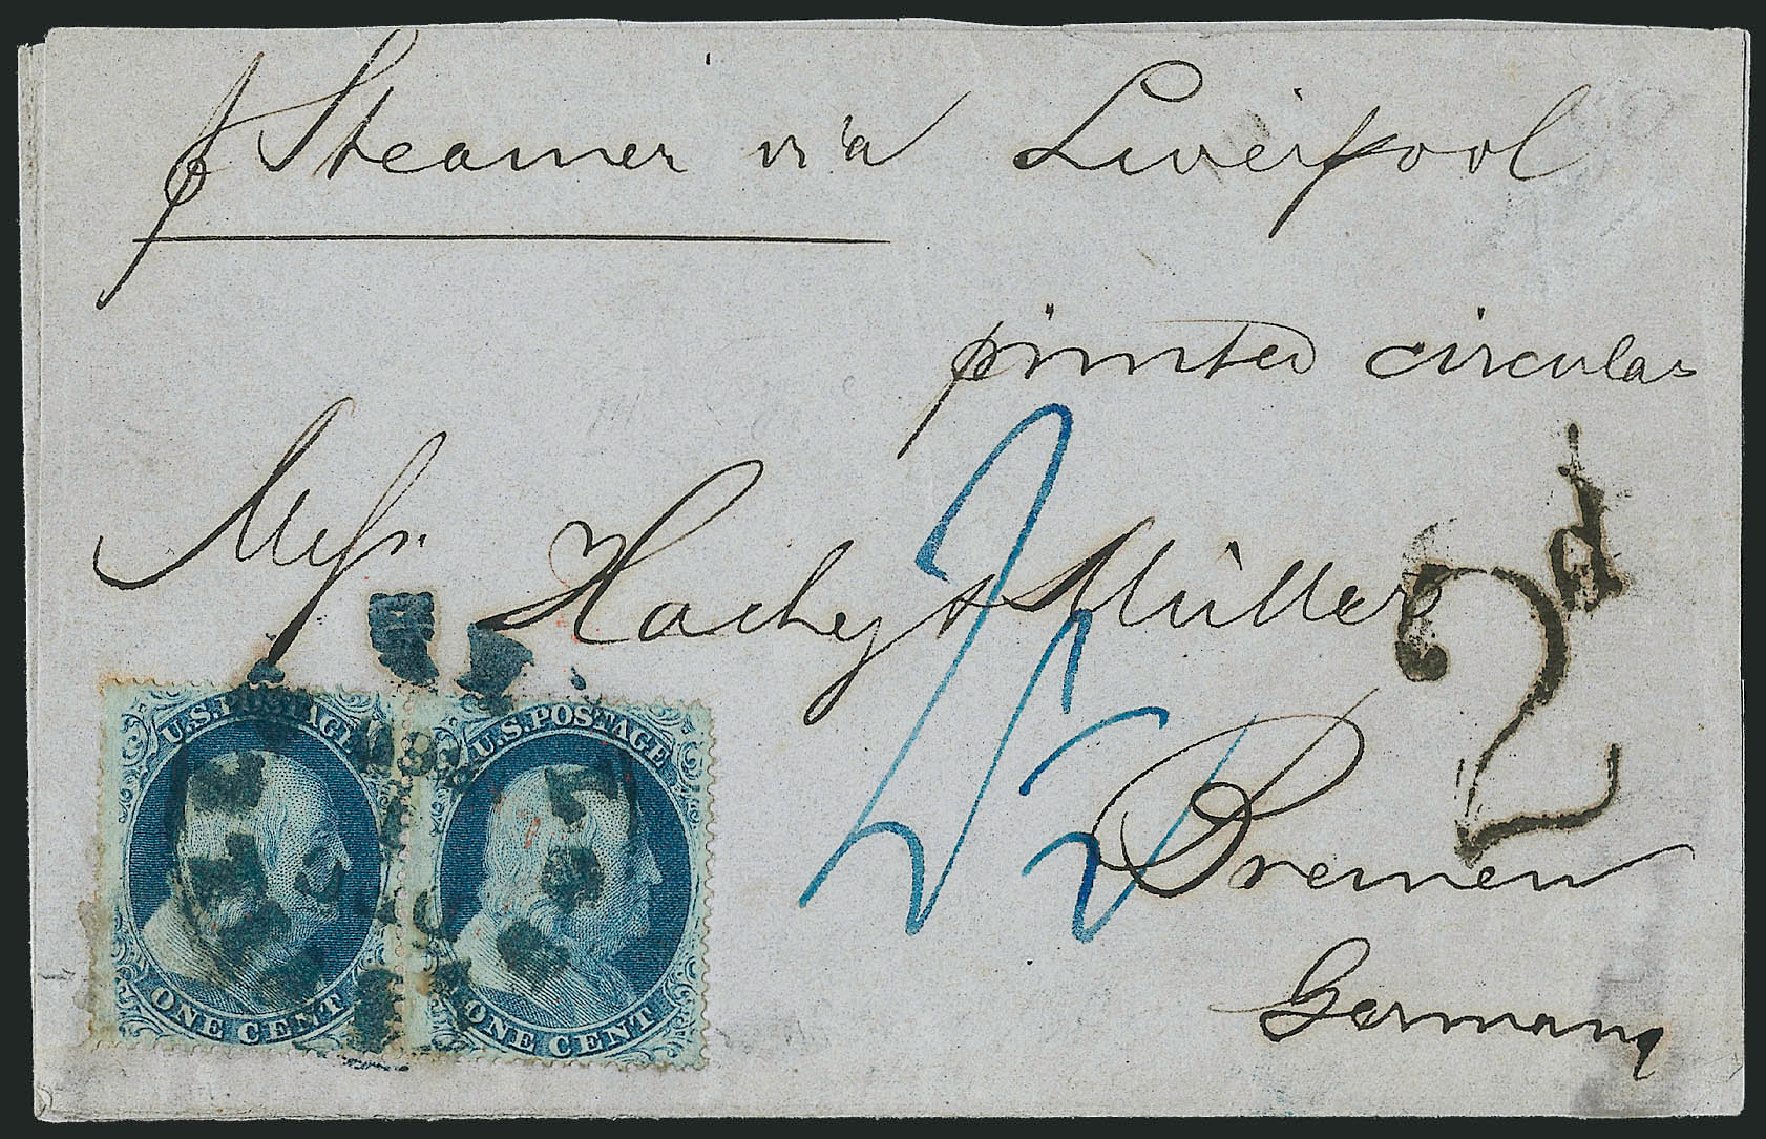 p Steamer via Liverpool
printed circular
Messr. Hachez & Müller
2d
Bremen
Germany
U.S. POSTAGE
ONE CENT
U.S. POSTAGE
ONE CENT